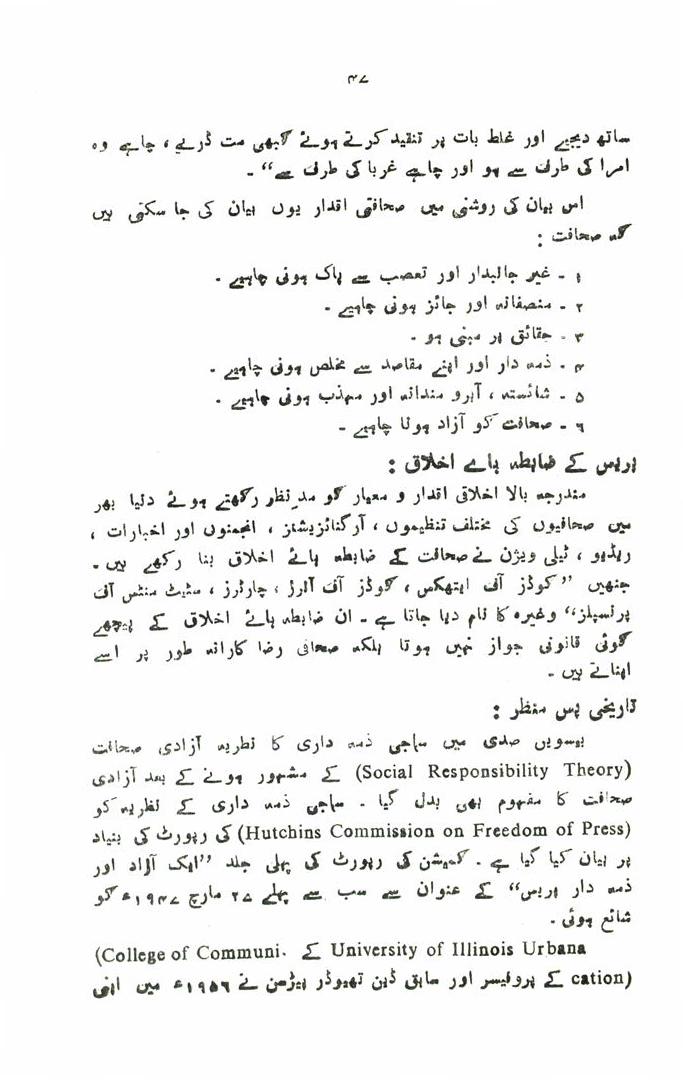 ۴۷
ساتھ دیجیے اور غلط بات پر تنقید کرتے ہوئے کبھی مت ڈریے ، چاہے وہ
امرا کی طرف سے ہو اور چاہے غربا کی طرف سے“ ۔
اس بیان کی روشنی میں صحافتی اقدار یوں بیان کی جا سکتی ہیں
کہ صحافت :
۱ ۔ غیر جانبدار اور تعصب سے پاک ہونی چاہیے ۔
۲ ۔ منصفانہ اور جائز ہونی چاہیے ۔
۳ ۔ حقائق پر مبنی ہو ۔
۴ ۔ ذمہ دار اور اپنے مقاصد سے مخلص ہونی چاہیے ۔
۵ ۔ شائستہ ، آبرو مندانہ اور مہذب ہونی چاہیے ۔
۶ ۔ صحافت کو آزاد ہونا چاہیے ۔
پریس کے ضابطہ ہاے اخلاق :
مندرجہ بالا اخلاقی اقدار و معیار کو مدِ نظر رکھتے ہوئے دنیا بھر
میں صحافیوں کی مختلف تنظیموں ، آرگنائزیشنز ، انجمنوں اور اخبارات ،
ریڈیو ، ٹیلی ویژن نے صحافت کے ضابطہ ہائے اخلاق بنا رکھے ہیں ۔
جنھیں ”کوڈز آف ایتھکس ، کوڈز آف آنرز ، چارٹرز ، سٹیٹ منٹس آف
پرنسپلز“ وغیرہ کا نام دیا جاتا ہے ۔ ان ضابطہ ہائے اخلاق کے پیچھے
کوئی قانونی جواز نہیں ہوتا بلکہ صحافی رضا کارانہ طور پر اسے
اپناتے ہیں ۔
تاریخی پس منظر :
بیسویں صدی میں سماجی ذمہ داری کا نظریہ آزادی صحافت
(Social Responsibility Theory) کے مشہور ہونے کے بعد آزادی
صحافت کا مفہوم بھی بدل گیا ۔ سماجی ذمہ داری کے نظریہ کو
(Hutchins Commission on Freedom of Press) کی رپورٹ کی بنیاد
پر بیان کیا گیا ہے ۔ کمیشن کی رپورٹ کی پہلی جلد ”ایک آزاد اور
ذمہ دار پریس“ کے عنوان سے سب سے پہلے ۲۷ مارچ ۱۹۴۷ء کو
شائع ہوئی ۔
University of Illinois Urbana کے (College of Communi-
cation) کے پروفیسر اور سابق ڈین تھیوڈر پیٹرسن نے ۱۹۵۶ء میں اپنی